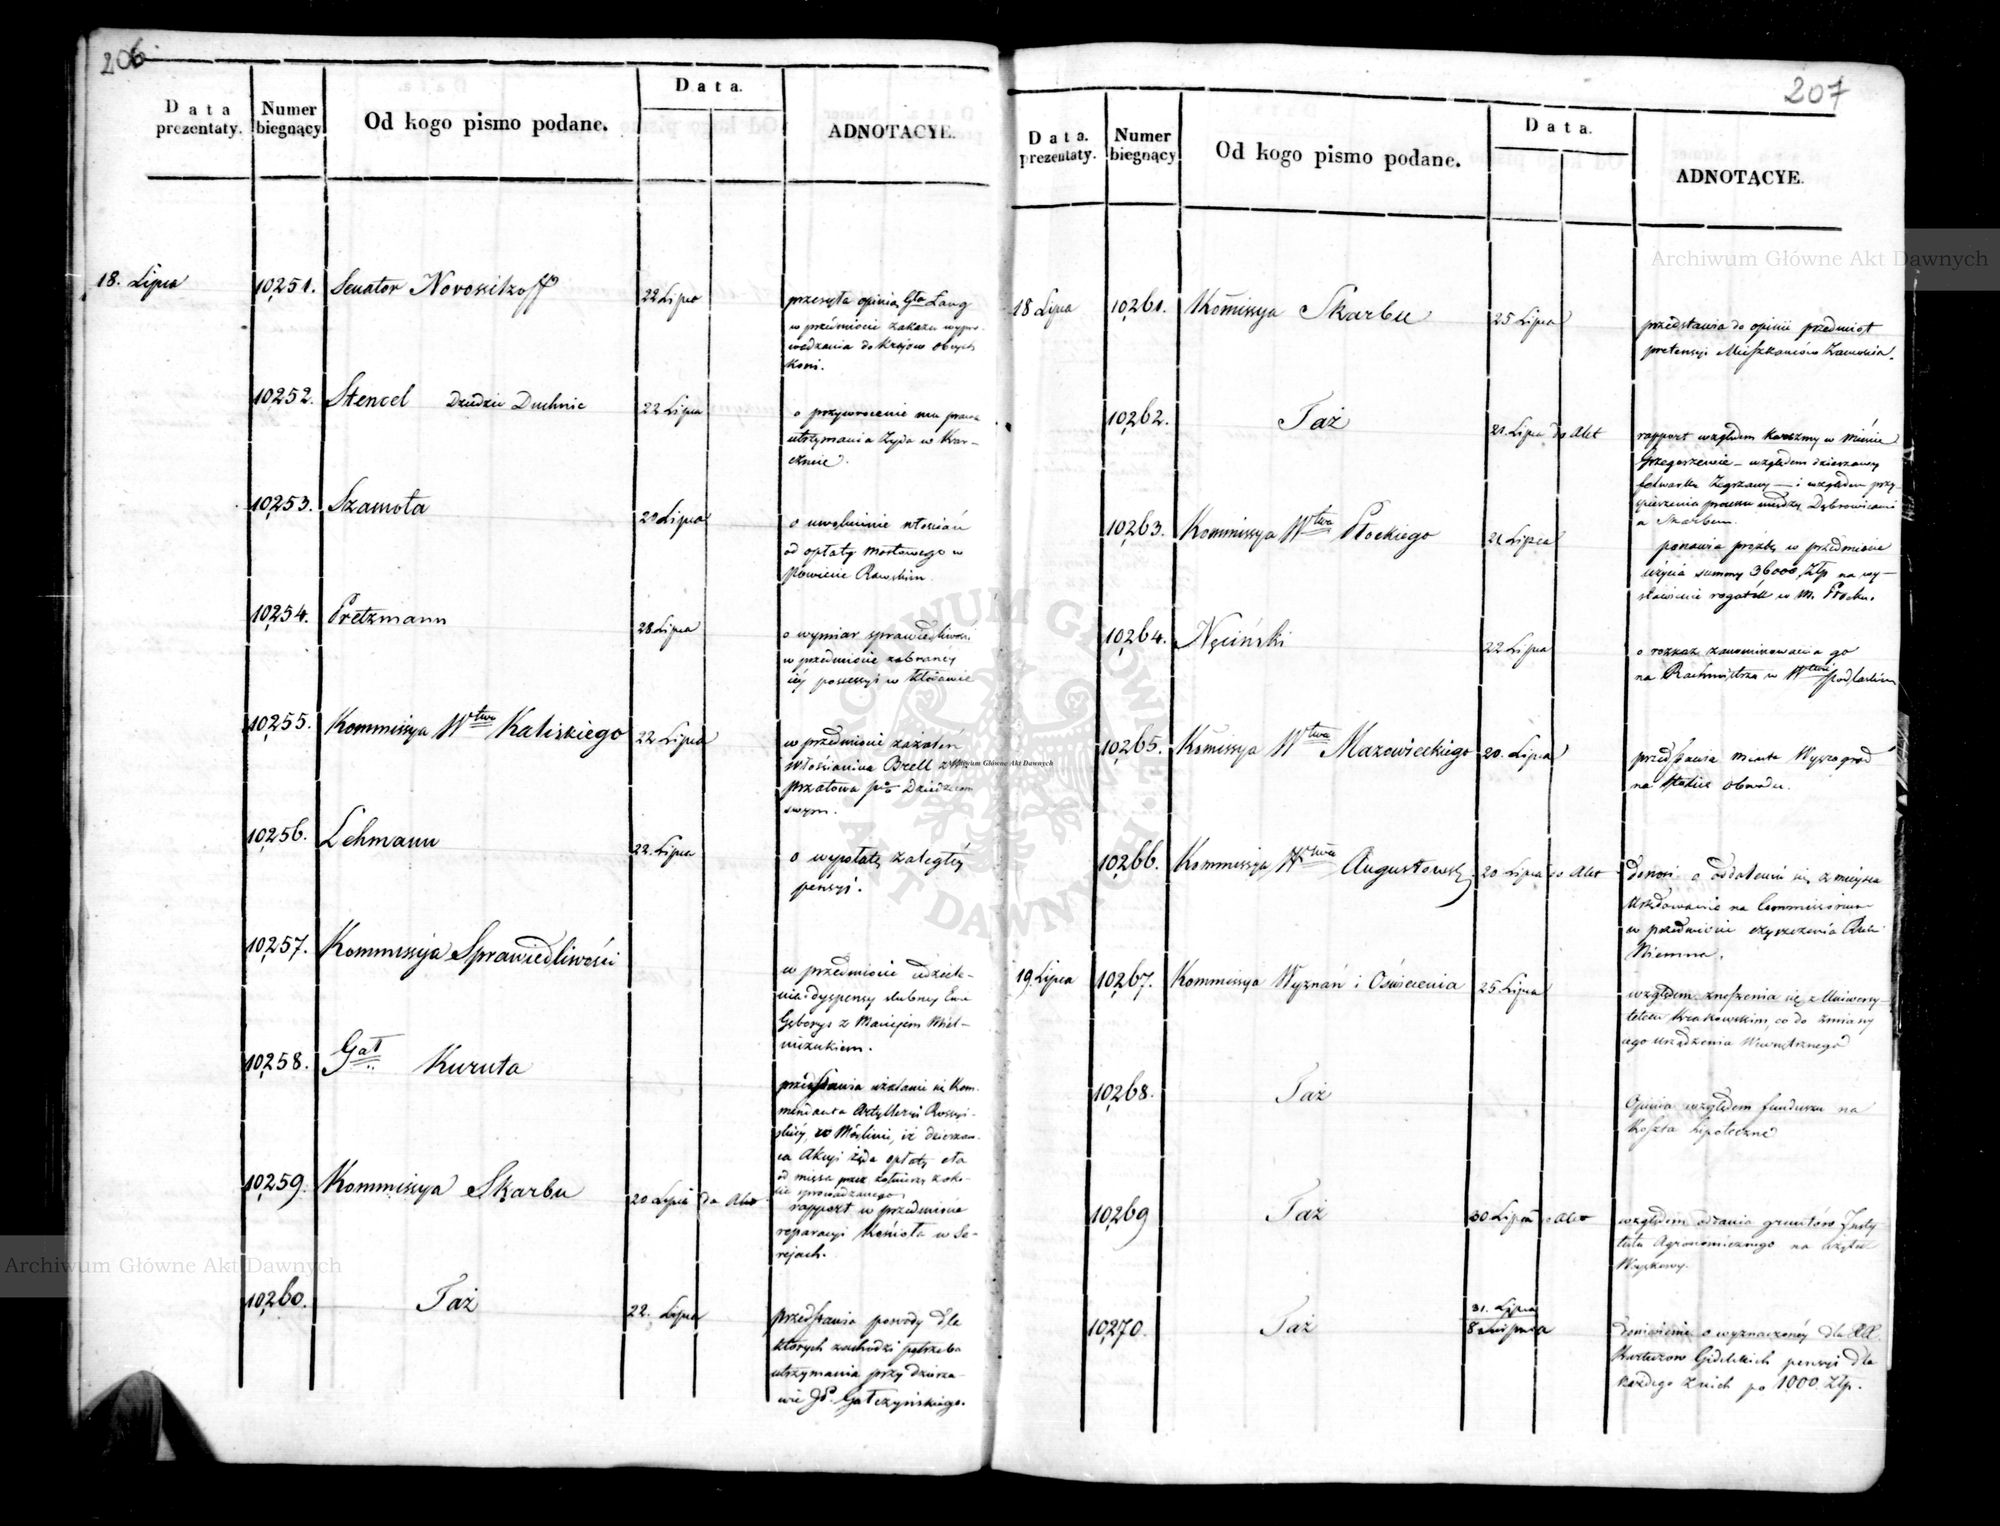 206
Data prezentaty.
Numer biegnący
Od kogo pismo podane.
Data.
ADNOTACYE.
18. Lipca
10,251. Senator Novossilzoff 22 Lipca
przesyła opinią Gła Laug
w przedmiocie zakazu wypro-
wadzania do krajów obcych
koni.
10,252. Stencel Dziedzic Duchnic 22 Lipca
o przywrocenie mu prawa
utrzymania Żyda w Kar-
czmie.
10,253. Szamota 29 Lipca
o uwolnienie włościan
od opłaty mostowego w
Powiecie Rawskim.
10,254. Pretzmann 28 Lipca
o wymiar sprawiedliwości
w przedmiocie zabranéy
iéy possessyi w Kłodawie
10,255. Kommissya Wtwa Kaliskiego 22 Lipca
w przedmiocie zażaleń
Włościanina Brell z
Przatowa Dziedzicem
swym.
10,256. Lehmann 22. Lipca
o wypłatę zaległéy
pensyi.
10,257. Kommissyja Sprawiedliwości
w przedmiocie udziele-
nia dyspensy ślubney Ewie
z Maciejem Miel-
niczukiem.
10,258. Gał Kuruta
przedstawia użalanie się Kom-
mendanta Artylleryi Rossyi-
skiéy, w iż dzierżaw-
ca Akcyi żąda opłaty
od mięsa przez żołnierzy z oko-
lic sprowadzanego.
10,259. Kommissya Skarbu 20 Lipca do Akt
rapport w przedmiocie
reparacyi Kościoła w Se-
rejach.
10,260. Taż 22. Lipca
przedstawia powody dla
których zachodzi potrzeba
utrzymania przy dzierża-
wie JP. Gałczyńskiego.
207
Data. prezentaty.
Numer biegnący
Od kogo pismo podane.
Data.
ADNOTACYE.
18 Lipca
10,261. Kom̄issya Skarbu 25 Lipca
przedstawia do opinii przedmiot
pretensyi Mieszkańców Zamościa.
10,262. Taż 21. Lipca do Akt
rapport względem karczmy w mieście
względem dzierżawy
folwarku Zegrzany — i względem przy
spieszenia processu między Dąbrowicami
a Skarbem.
10,263. Kommissya Wtwa Płockiego 21 Lipca
ponawia prośbę w przedmiocie
użycia summy 36000 Złp na wy-
stawienie rogatek w m. Płocku.
10,264. Nęciński 22 Lipca
o rozkaz zanominowania go
na Rachmistrza w Wtwie Podlaskim
10,265. Kom̄issya Wtwa Mazowieckiego 20. Lipca
przedstawia miasto Wyszogród
na stolicę obwodu.
10,266. Kommissyja Wtwa Augustowski 20 Lipca do Akt
donosi o oddaleniu się z mieysca
Urzędowanie na Commissorium
w przedmiocie czyszczenia Rzeki
Niemna.
19. Lipca
10,267. Kommissya Wyznań i Oświecenia 25 Lipca
względem znoszenia się z Uniwersy-
tetem Krakowskim, co do zmiany
iego urządzenia Wewnętrznego
10,268. Taż
Opinia względem funduszu na
Koszta hipoteczne
10,269 Taż 30 Lipca do Akt
względem oddania gruntów Insty
tutu Agronomicznego na użytek
Woyskowy.
10,270. Taż 31. Lipca
8 Sierpnia
doniesienie o wyznaczonéy dla XX.
Kartuzow Gidelskich pensyi dla
każdego z nich po 1000 Złp.
Archiwum Główne Akt Dawnych
Archiwum Główne Akt Dawnych
Archiwum Główne Akt Dawnych
ARCHIWUM GŁÓWNE AKT DAWNYCH